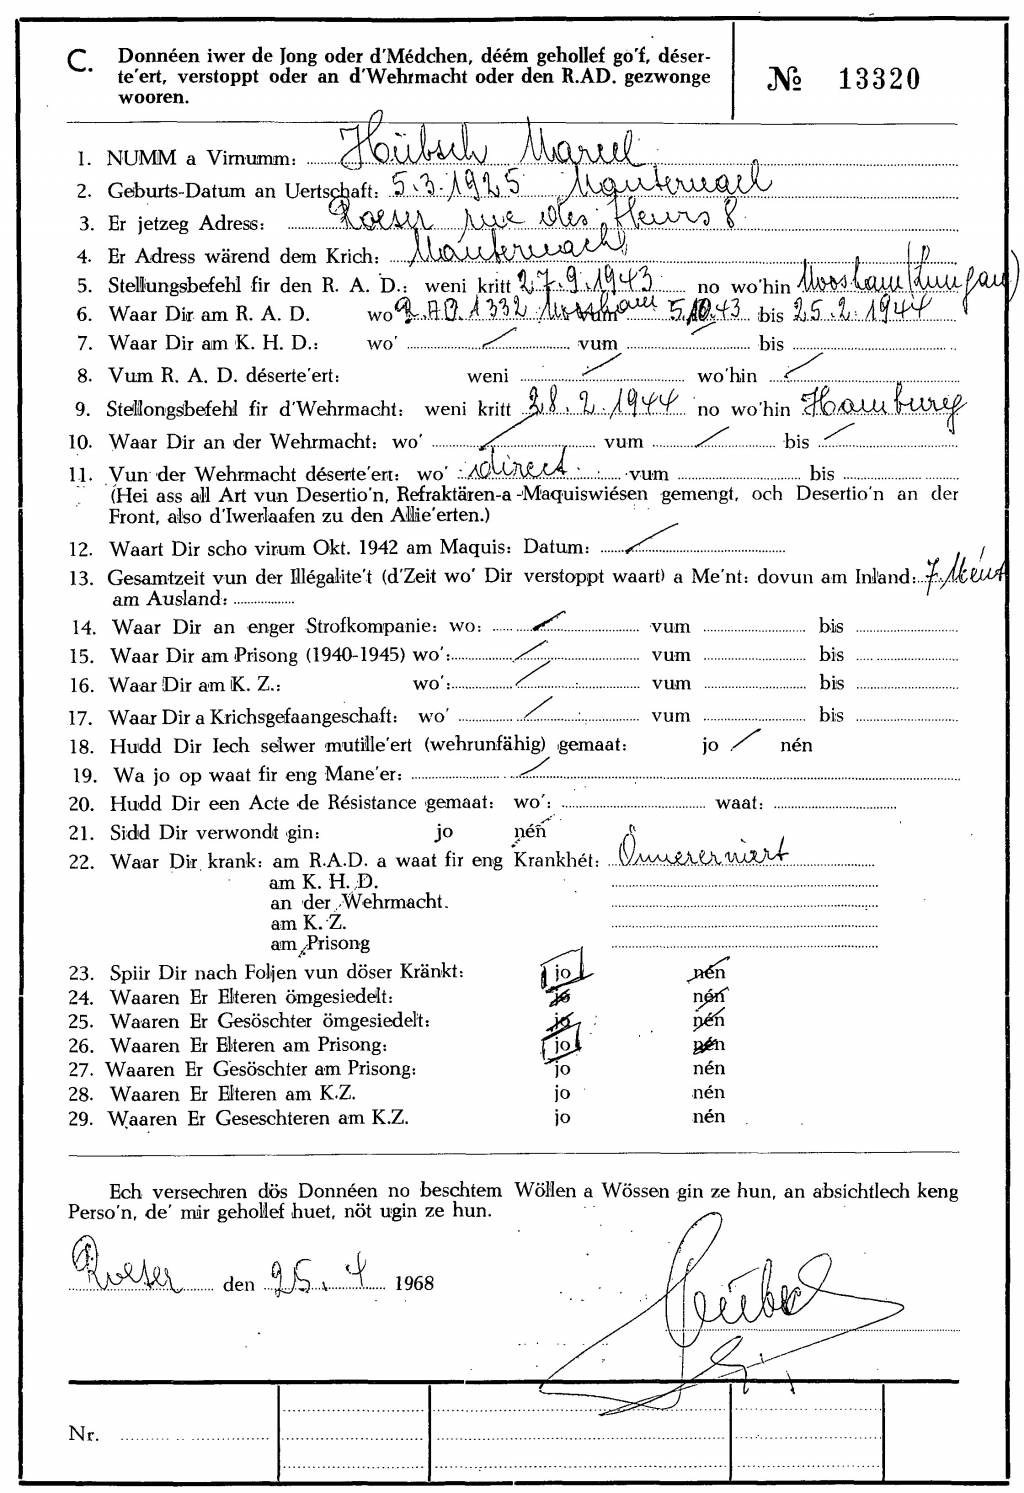 C. Donnéen iwer de Jong oder d'Médchen, déém gehollef go'f, déser-
te'ert, verstoppt oder an d'Wehrmacht oder den R.AD. gezwonge
wooren.
№ 13320
1. NUMM a Virnumm: Hübsch Marcel
2. Geburts-Datum an Uertschaft: 5.3.1925 Manternach
3. Er jetzeg Adress: Roeser rue des fleurs 8
4. Er Adress wärend dem Krich: Manternach
5. Stellungsbefehl fir den R. A. D.: weni kritt 27.9.1943 no wo'hin Moosham (Lungau)
6. Waar Dir am R. A. D. wo R.A.D. 1332 Moosham vum 5.10.43 bis 25.2.1944
7. Waar Dir am K. H. D.: wo' / vum / bis
8. Vum R. A. D. déserte'ert: weni / wo'hin /
9. Stellongsbefehl fir d'Wehrmacht: weni kritt 28.2.1944 no wo'hin Hamburg
10. Waar Dir an der Wehrmacht: wo' / vum / bis /
11. Vun der Wehrmacht déserte'ert: wo' direct vum bis
(Hei ass all Art vun Desertio'n, Refraktären-a-Maquiswiésen gemengt, och Desertio'n an der
Front, also d'Iwerlaafen zu den Allie'erten.)
12. Waart Dir scho virum Okt. 1942 am Maquis: Datum: /
13. Gesamtzeit vun der Illégalite't (d'Zeit wo' Dir verstoppt waart) a Me'nt: dovun am Inland: 7 Méint
am Ausland:
14. Waar Dir an enger Strofkompanie: wo: / vum bis
15. Waar Dir am Prisong (1940-1945) wo': / vum bis
16. Waar Dir am K. Z.: wo': / vum bis
17. Waar Dir a Krichsgefaangeschaft: wo' / vum bis
18. Hudd Dir Iech selwer mutille'ert (wehrunfähig) gemaat: jo / nén
19. Wa jo op waat fir eng Mane'er: /
20. Hudd Dir een Acte de Résistance gemaat: wo': waat:
21. Sidd Dir verwondt gin: jo nén
22. Waar Dir krank: am R.A.D. a waat fir eng Krankhét:
am K. H. D.
an der Wehrmacht.
am K. Z.
am Prisong
23. Spiir Dir nach Foljen vun döser Kränkt: jo nén
24. Waaren Er Elteren ömgesiedelt: jo nén
25. Waaren Er Gesöschter ömgesiedelt: jo nén
26. Waaren Er Elteren am Prisong: jo nén
27. Waaren Er Gesöschter am Prisong: jo nén
28. Waaren Er Elteren am K.Z. jo nén
29. Waaren Er Geseschteren am K.Z. jo nén
Ech versechren dös Donnéen no beschtem Wöllen a Wössen gin ze hun, an absichtlech keng
Perso'n, de' mir gehollef huet, nöt ugin ze hun.
Roeser den 25.4 1968
Nr.